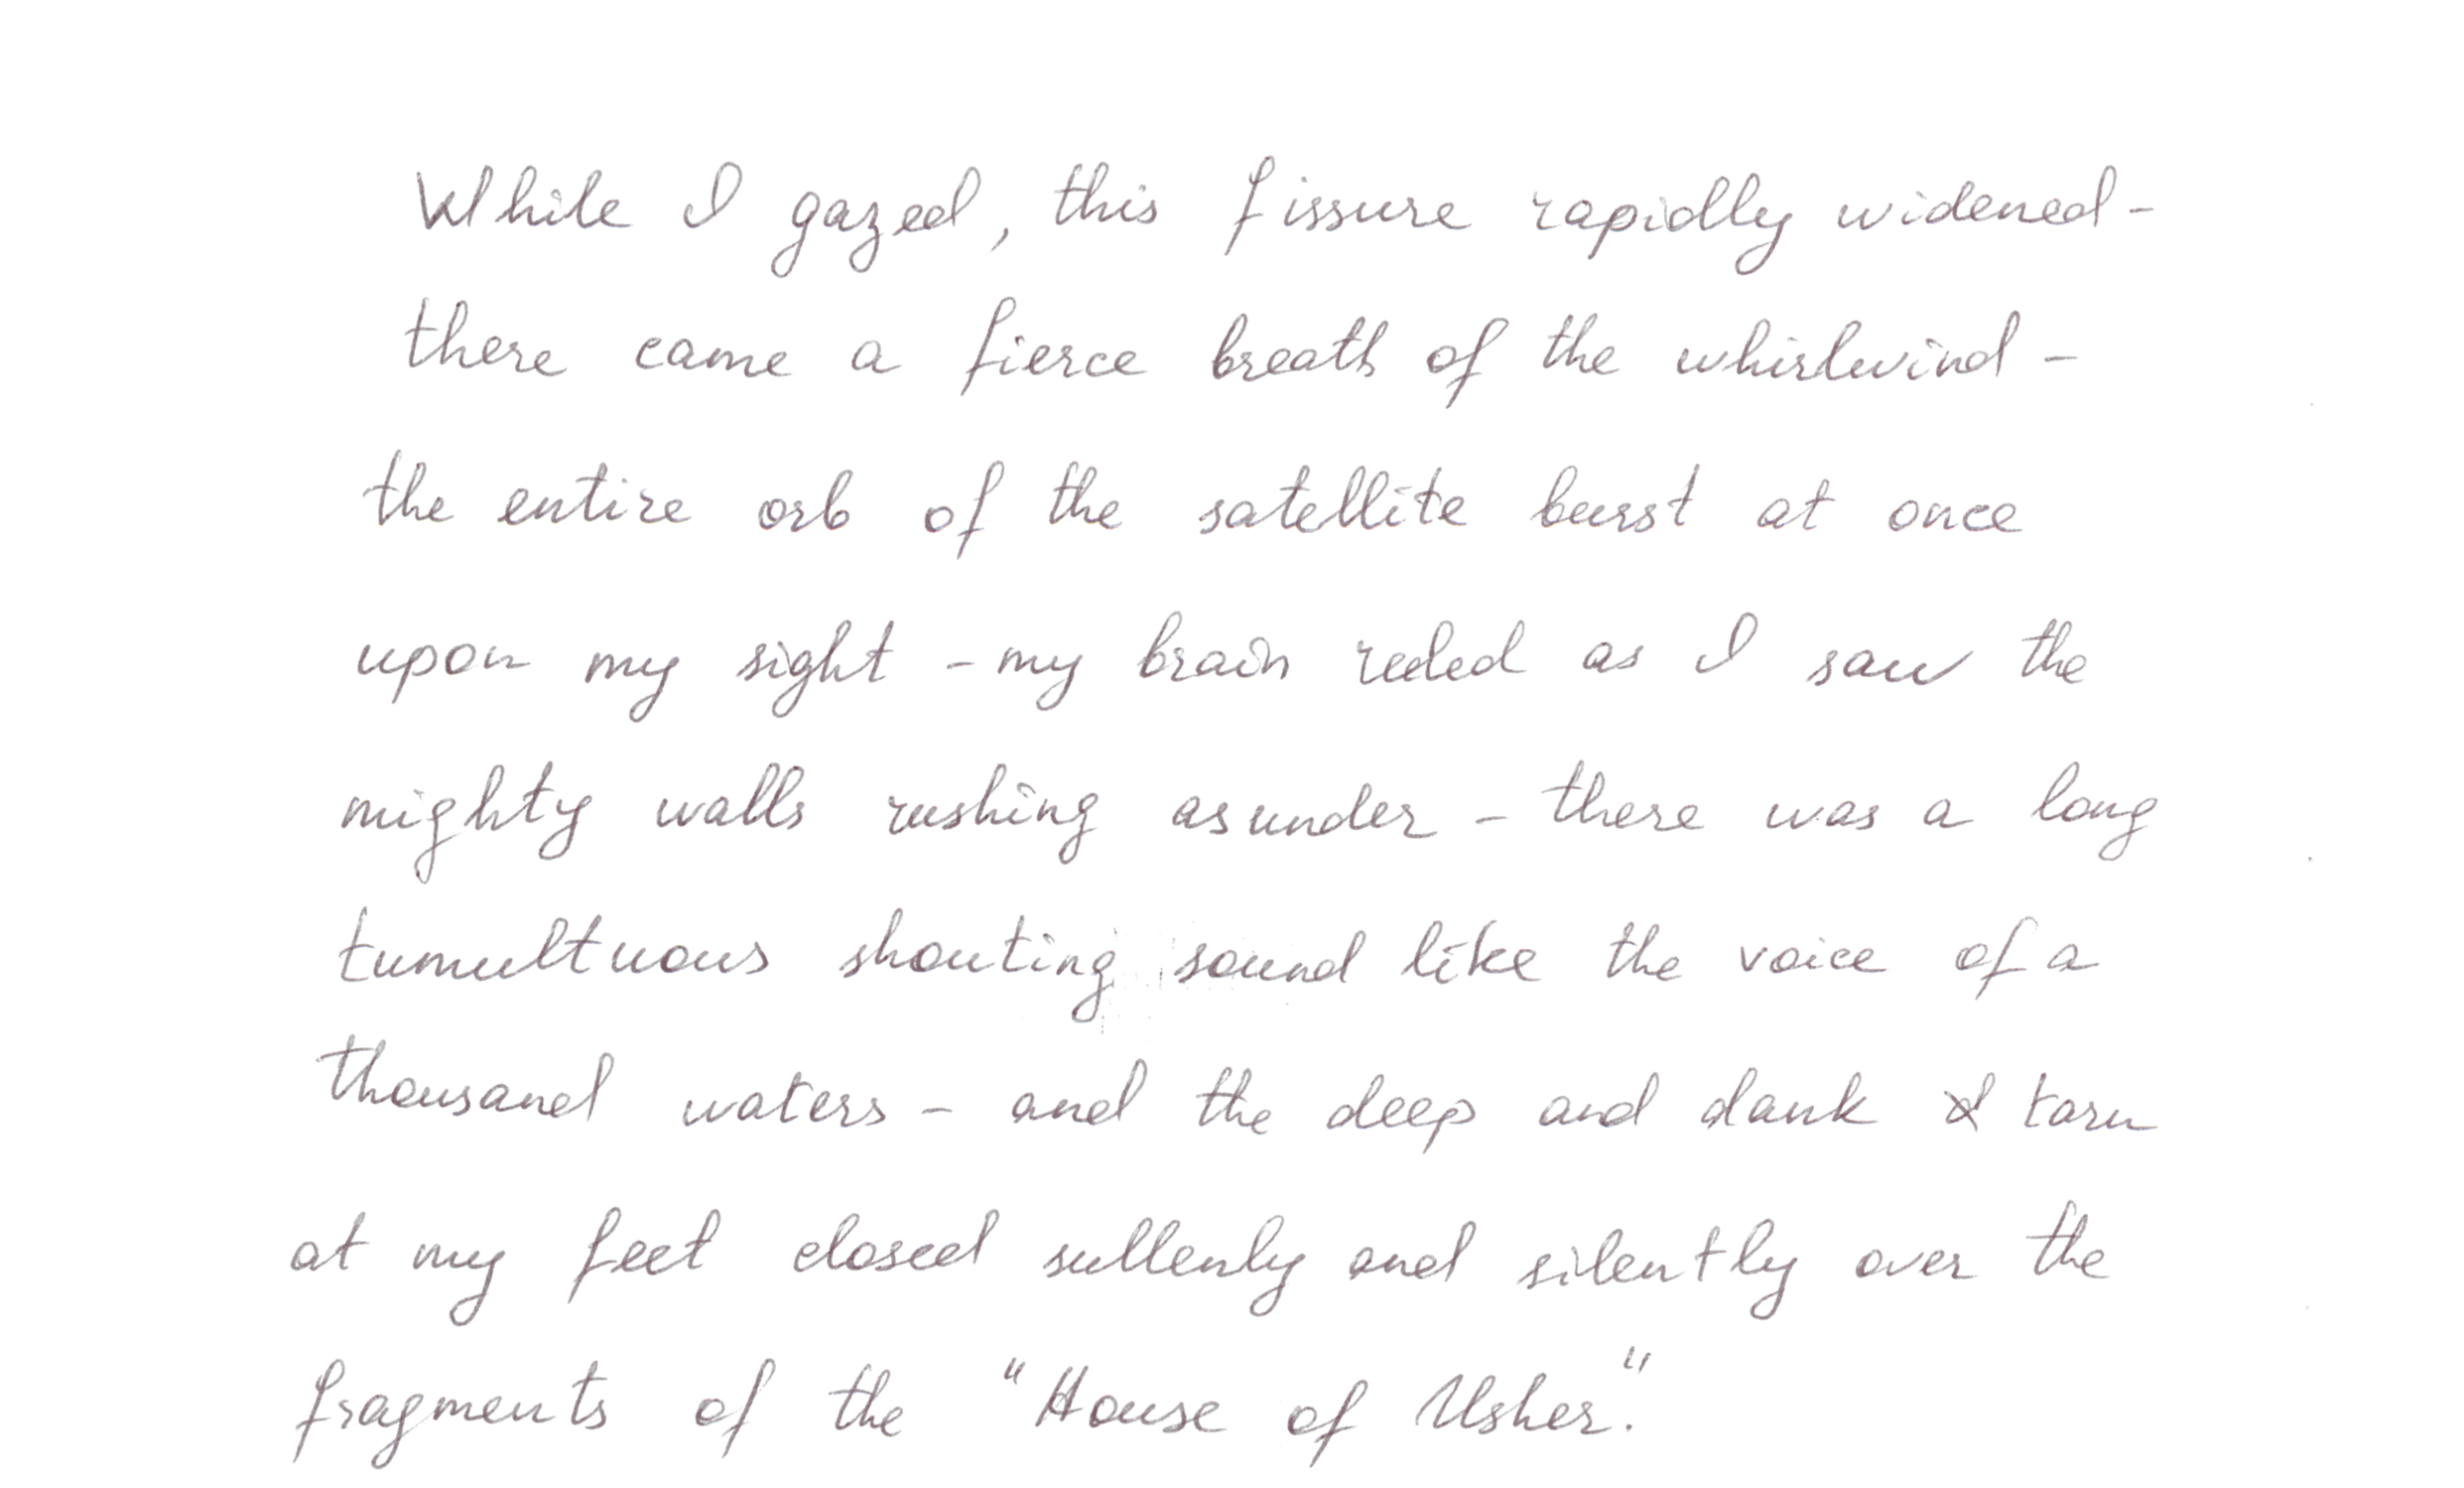 While I gazed, this fissure rapidly widened -
there came a fierce breath of the whirlwind -
the entire orb of the satellite burst at once
upon my sight - my brain reeled as I saw the
mighty walls rushing asunder - there was a long
tumultuous shouting sound like the voice of a
thousand waters - and the deep and dank & tarn
at my feet closed sullenly and silently over the
fragments of the "House of Usher."